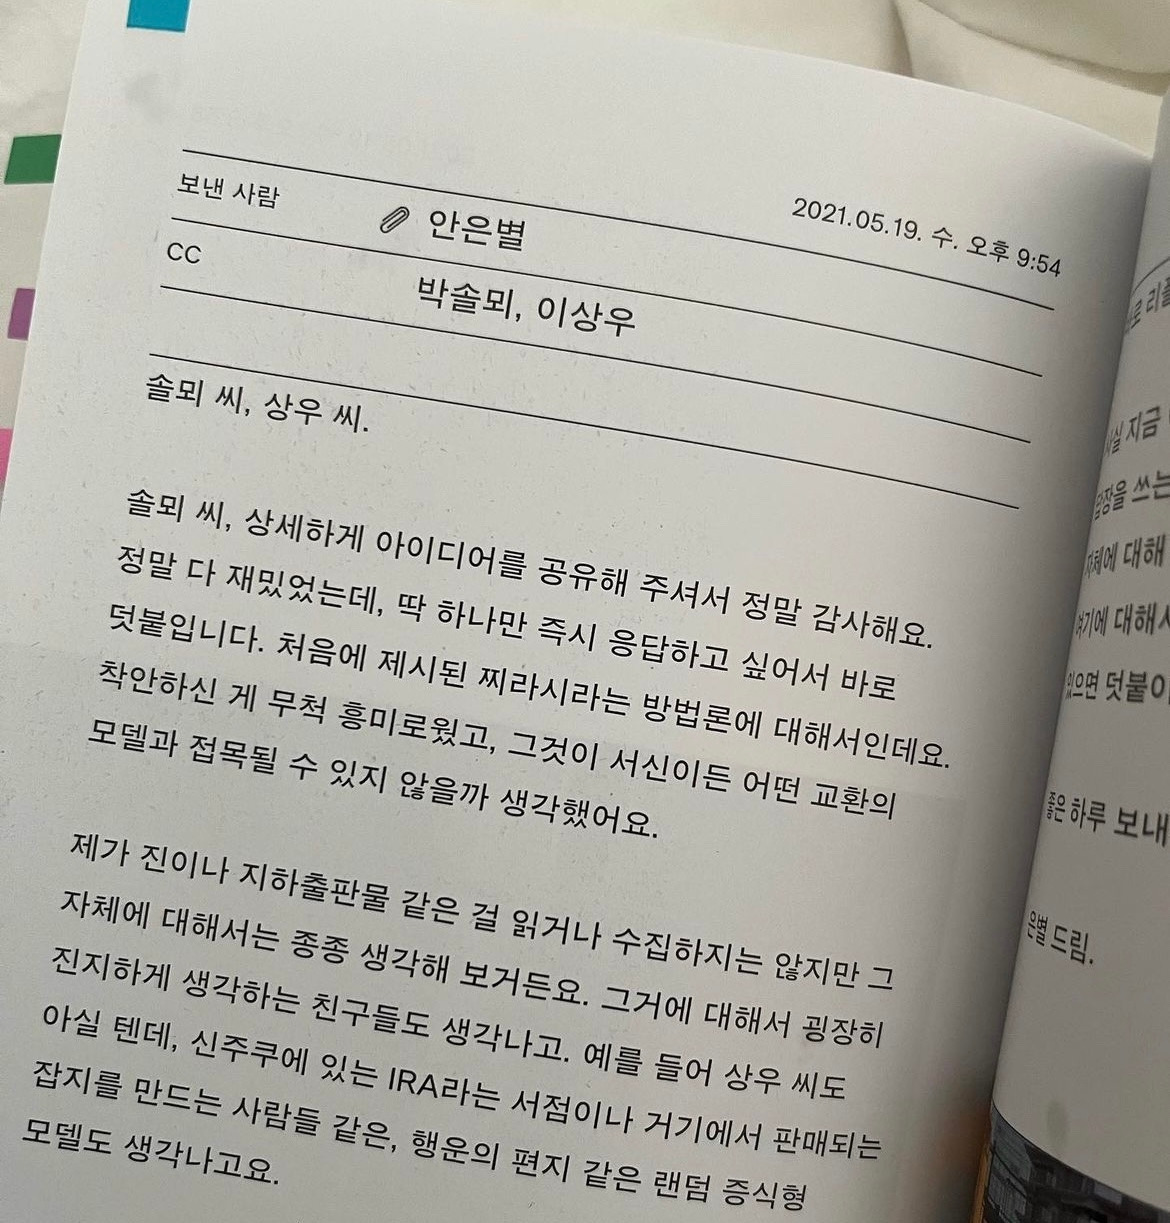 2021.05.19. 수. 오후 9:54
보낸 사람 안은별
CC 박솔뫼, 이상우
솔뫼 씨, 상우 씨.
솔뫼 씨, 상세하게 아이디어를 공유해 주셔서 정말 감사해요.
정말 다 재밌었는데, 딱 하나만 즉시 응답하고 싶어서 바로
덧붙입니다. 처음에 제시된 찌라시라는 방법론에 대해서인데요.
착안하신 게 무척 흥미로웠고, 그것이 서신이든 어떤 교환의
모델과 접목될 수 있지 않을까 생각했어요.
제가 진이나 지하출판물 같은 걸 읽거나 수집하지는 않지만 그
자체에 대해서는 종종 생각해 보거든요. 그거에 대해서 굉장히
진지하게 생각하는 친구들도 생각나고. 예를 들어 상우 씨도
아실 텐데, 신주쿠에 있는 IRA라는 서점이나 거기에서 판매되는
잡지를 만드는 사람들 같은, 행운의 편지 같은 랜덤 증식형
모델도 생각나고요.
지금
쓰는
대해
여기에 대해서
있으면
좋은 하루 보내
은별 드림.